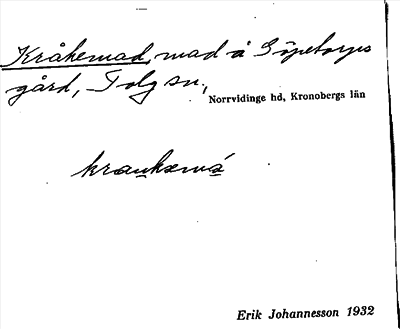 Kråkemad, mad å Göpetorps
gård, Tolg sn,
Norrvidinge hd, Kronobergs län
kraukæmá
Erik Johannesson 1932